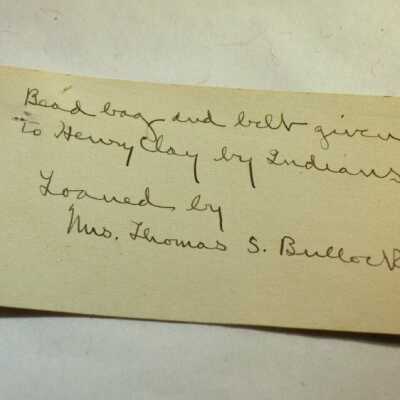 Bead bag and belt given
to Henry Clay by Indians
Loaned by
Mrs. Thomas S. Bullock